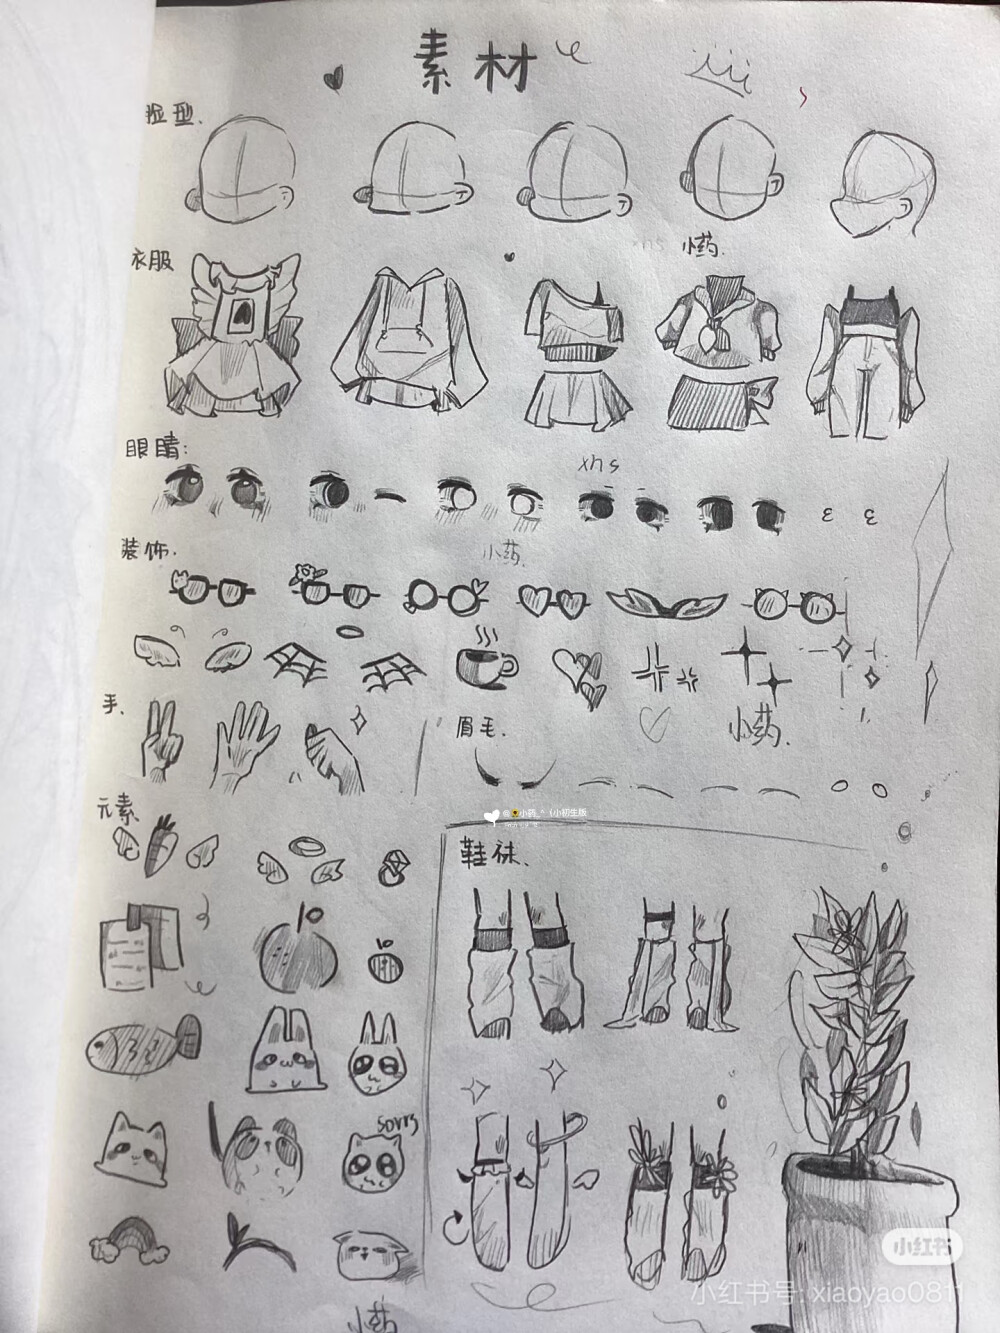 素材
脸型.
衣服
小药.
眼睛:
xhs
装饰.
小药.
手.
眉毛.
小药.
元素
鞋袜.
10
10
sorry
小药
小红书
小红书号: xiaoyao0811